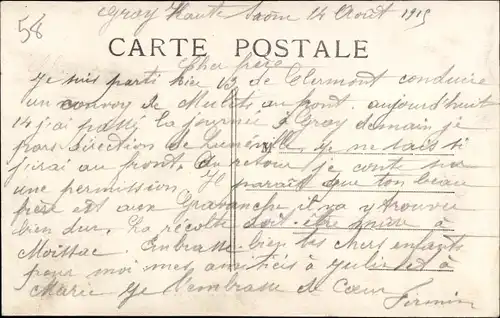 58
Gray Haute Saône 14 Août 1915
CARTE POSTALE
Cher frère
Je suis parti hier 13 de Clermont conduire
un convoy de Mulets au front. aujourd'huit
14 j'ai passé la journée à Gray demain je
pars direction de Lunéville. je ne sais si
j'irai au front. Au retour je conte sur
une permission. Il parait que ton beau
frère est aux Gravanche, il va y trouver
bien dur. La récolte doit être mûre à
Moissac. Embrasse bien tes chers enfants
pour moi mes amitiés à Julie et à
Marie je t'embrasse de Cœur
Firmin